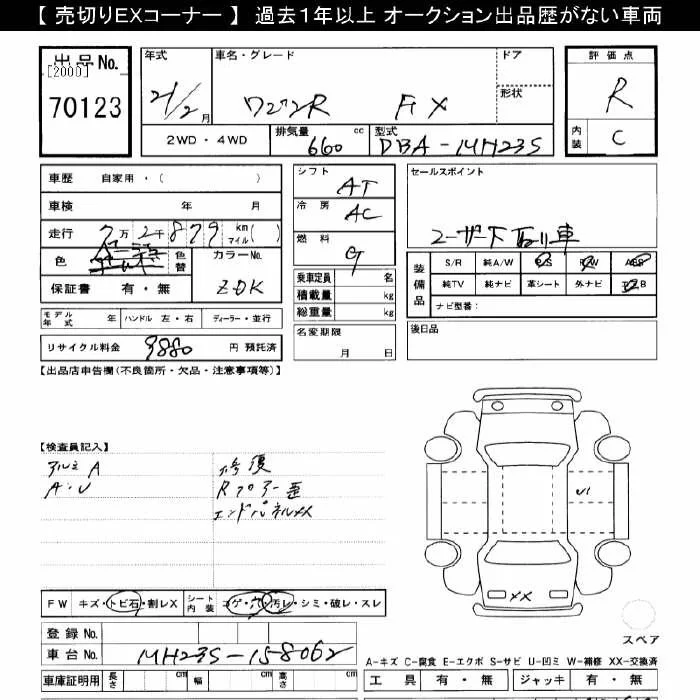 【 売切りEXコーナー 】 過去1年以上 オークション出品歴がない車両
出品No.
[2000]
70123
年式
21/2月
車名・グレード
ワゴンR FX
ドア
形状
2WD・4WD
排気量
660 cc
型式
DBA-MH23S
評価点
R
内装
C
車歴 自家用・( )
車検 年 月
走行 7万2千879 km マイル( )
色
色替
カラーNo.
ZDK
保証書 有・無
モデル年式 年
ハンドル 左・右
ディーラー・並行
リサイクル料金 9880 円 預託済
シフト
AT
冷房
AC
燃料
G
乗車定員 名
積載量 kg
総重量 kg
名変期限
月 日
セールスポイント
ユーザー下取り車
装備品
S/R 純A/W P/S P/W ABB
純TV 純ナビ 革シート 外ナビ エアB
ナビ型番:
後日品
【出品店申告欄(不良箇所・欠品・注意事項等)】
【検査員記入】
アルミA
A・U
修復
Rフロアー歪
エンドパネルXX
U1
XX
FW キズ・トビ石・割レX
シート内装 コゲ・穴・汚レ・シミ・破レ・スレ
登録No.
車台No. MH23S-158062
スペア
A-キズ C-腐食 E-エクボ S-サビ U-凹ミ W-補修 XX-交換済
車庫証明用 長さ cm 幅 cm 高さ cm
工具 有・無 ジャッキ 有・無